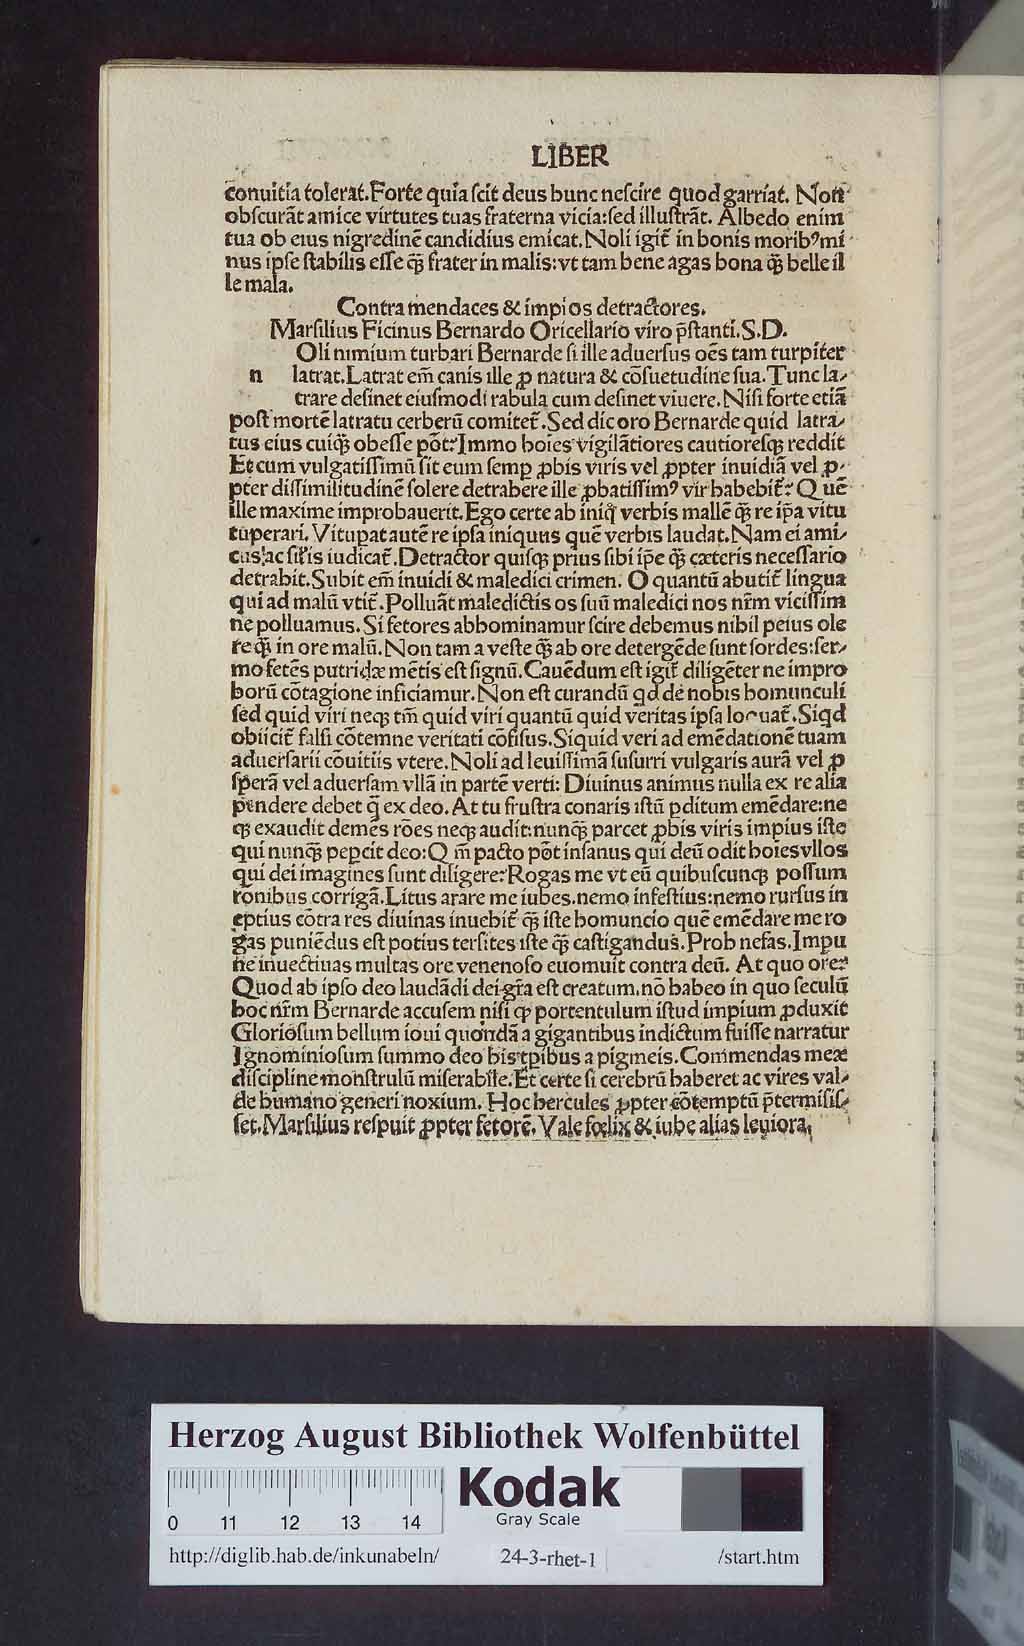 LIBER
cōnuitia tolerat. Forte quia scit deus hunc nescire quod garriat. Non
obscurāt amice virtutes tuas fraterna vicia: sed illustrāt. Albedo enim
tua ob eius nigredinē candidius emicat. Noli igit̃ in bonis moribꝰ mi
nus ipse stabilis esse q̃ꝫ frater in malis: vt tam bene agas bona q̃ꝫ belle il
le mala.
Contra mendaces & impios detractores.
Marsilius Ficinus Bernardo Oricellario viro p̄stanti. S. D.
Oli nimium turbari Bernarde si ille aduersus oēs tam turpiter
n latrat. Latrat em̄ canis ille ꝓ natura & cōsuetudine sua. Tunc la-
trare desinet eiusmodi rabula cum desinet viuere. Nisi forte etiā
post mortē latratu cerberū comitet̃. Sed dic oro Bernarde quid latra-
tus eius cuiq̃ꝫ obesse pōt? Immo hoīes vigilātiores cautioresqꝫ reddit
Et cum vulgatissimū sit eum semꝑ ꝓbis viris vel ꝓpter inuidiā vel ꝓ-
pter dissimilitudinē solere detrahere ille ꝓbatissimꝰ vir habebit̃? Quē
ille maxime improbauerit. Ego certe ab iniq̃ verbis mallē q̃ꝫ re ip̄a vitu
tuperari. Vitupat autē re ipsa iniquus quē verbis laudat. Nam ei ami-
cus ac sil̃is iudicat̃. Detractor quisqꝫ prius sibi ip̄e q̃ꝫ cæteris necessario
detrahit. Subit em̄ inuidi & maledici crimen. O quantū abutit̃ lingua
qui ad malū vtit̃. Polluāt maledictis os suū maledici nos nr̄m vicissim
ne polluamus. Si fetores abbominamur scire debemus nihil peius ole
re q̃ꝫ in ore malū. Non tam a veste q̃ꝫ ab ore detergēde sunt sordes: ser-
mo fetēs putridæ mētis est signū. Cauēdum est igit̃ diligēter ne impro
borū cōtagione inficiamur. Non est curandū qd de nobis homunculi
sed quid viri neqꝫ tm̄ quid viri quantū quid veritas ipsa loquat̃. Siqd
obiicit̃ falsi cōtemne veritati cōfisus. Siquid veri ad emēdationē tuam
aduersarii cōuitiis vtere. Noli ad leuissimā susurri vulgaris aurā vel ꝓ
sperā vel aduersam vllā in partē verti: Diuinus animus nulla ex re alia
pendere debet q̃ ex deo. At tu frustra conaris istū ꝑditum emēdare: ne
qꝫ exaudit demēs rōes neqꝫ audit: nunq̃ꝫ parcet ꝓbis viris impius iste
qui nunq̃ꝫ peꝑcit deo: Q m̄ pacto pōt insanus qui deū odit hoīes vllos
qui dei imagines sunt diligere? Rogas me vt eū quibuscunqꝫ possum
rōnibus corrigā. Litus arare me iubes. nemo infestius: nemo rursus in
eptius cōtra res diuinas inuehit̃ q̃ꝫ iste homuncio quē emēdare me ro
gas puniēdus est potius tersites iste q̃ꝫ castigandus. Proh nefas. Impu
ne inuectiuas multas ore venenoso euomuit contra deū. At quo ore?
Quod ab ipso deo laudādi dei gr̄a est creatum. nō habeo in quo seculū
hoc nr̄m Bernarde accusem nisi ꝙ portentulum istud impium ꝓduxit
Gloriosum bellum ioui quondā a gigantibus indictum fuisse narratur
Ignominiosum summo deo his tp̄ibus a pigmeis. Commendas meæ
discipline monstrulū miserabile. Et certe si cerebrū haberet ac vires val-
de humano generi noxium. Hoc hercules ꝓpter cōtemptū p̄termisis-
set. Marsilius respuit ꝓpter fetorē. Vale fœlix & iube alias leuiora.
Herzog August Bibliothek Wolfenbüttel
0 11 12 13 14
Kodak
Gray Scale
http://diglib.hab.de/inkunabeln/ 24-3-rhet-1 /start.htm